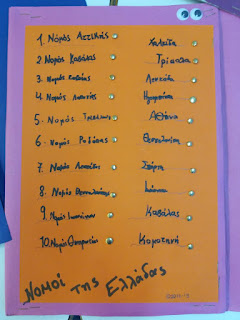 1. Νομός Αττικής Χαλκίδα
2 Νομός Καβάλας Τρίκαλα
3. Νομός Ευβοίας Λειβαδιά
4. Νομός Λακωνίας Ηγουμενίτσα
5. Νομός Τρικάλων Αθήνα
6. Νομός Ροδόπης Θεσσαλονίκη
7. Νομός Σπάρτη
8. Νομός Θεσσαλονίκης Ιωάννινα
9. Νομός Ιωαννίνων Καβάλας
10. Νομός Θεσπρωτίας Κομοτηνή
Νομοί της Ελλάδας